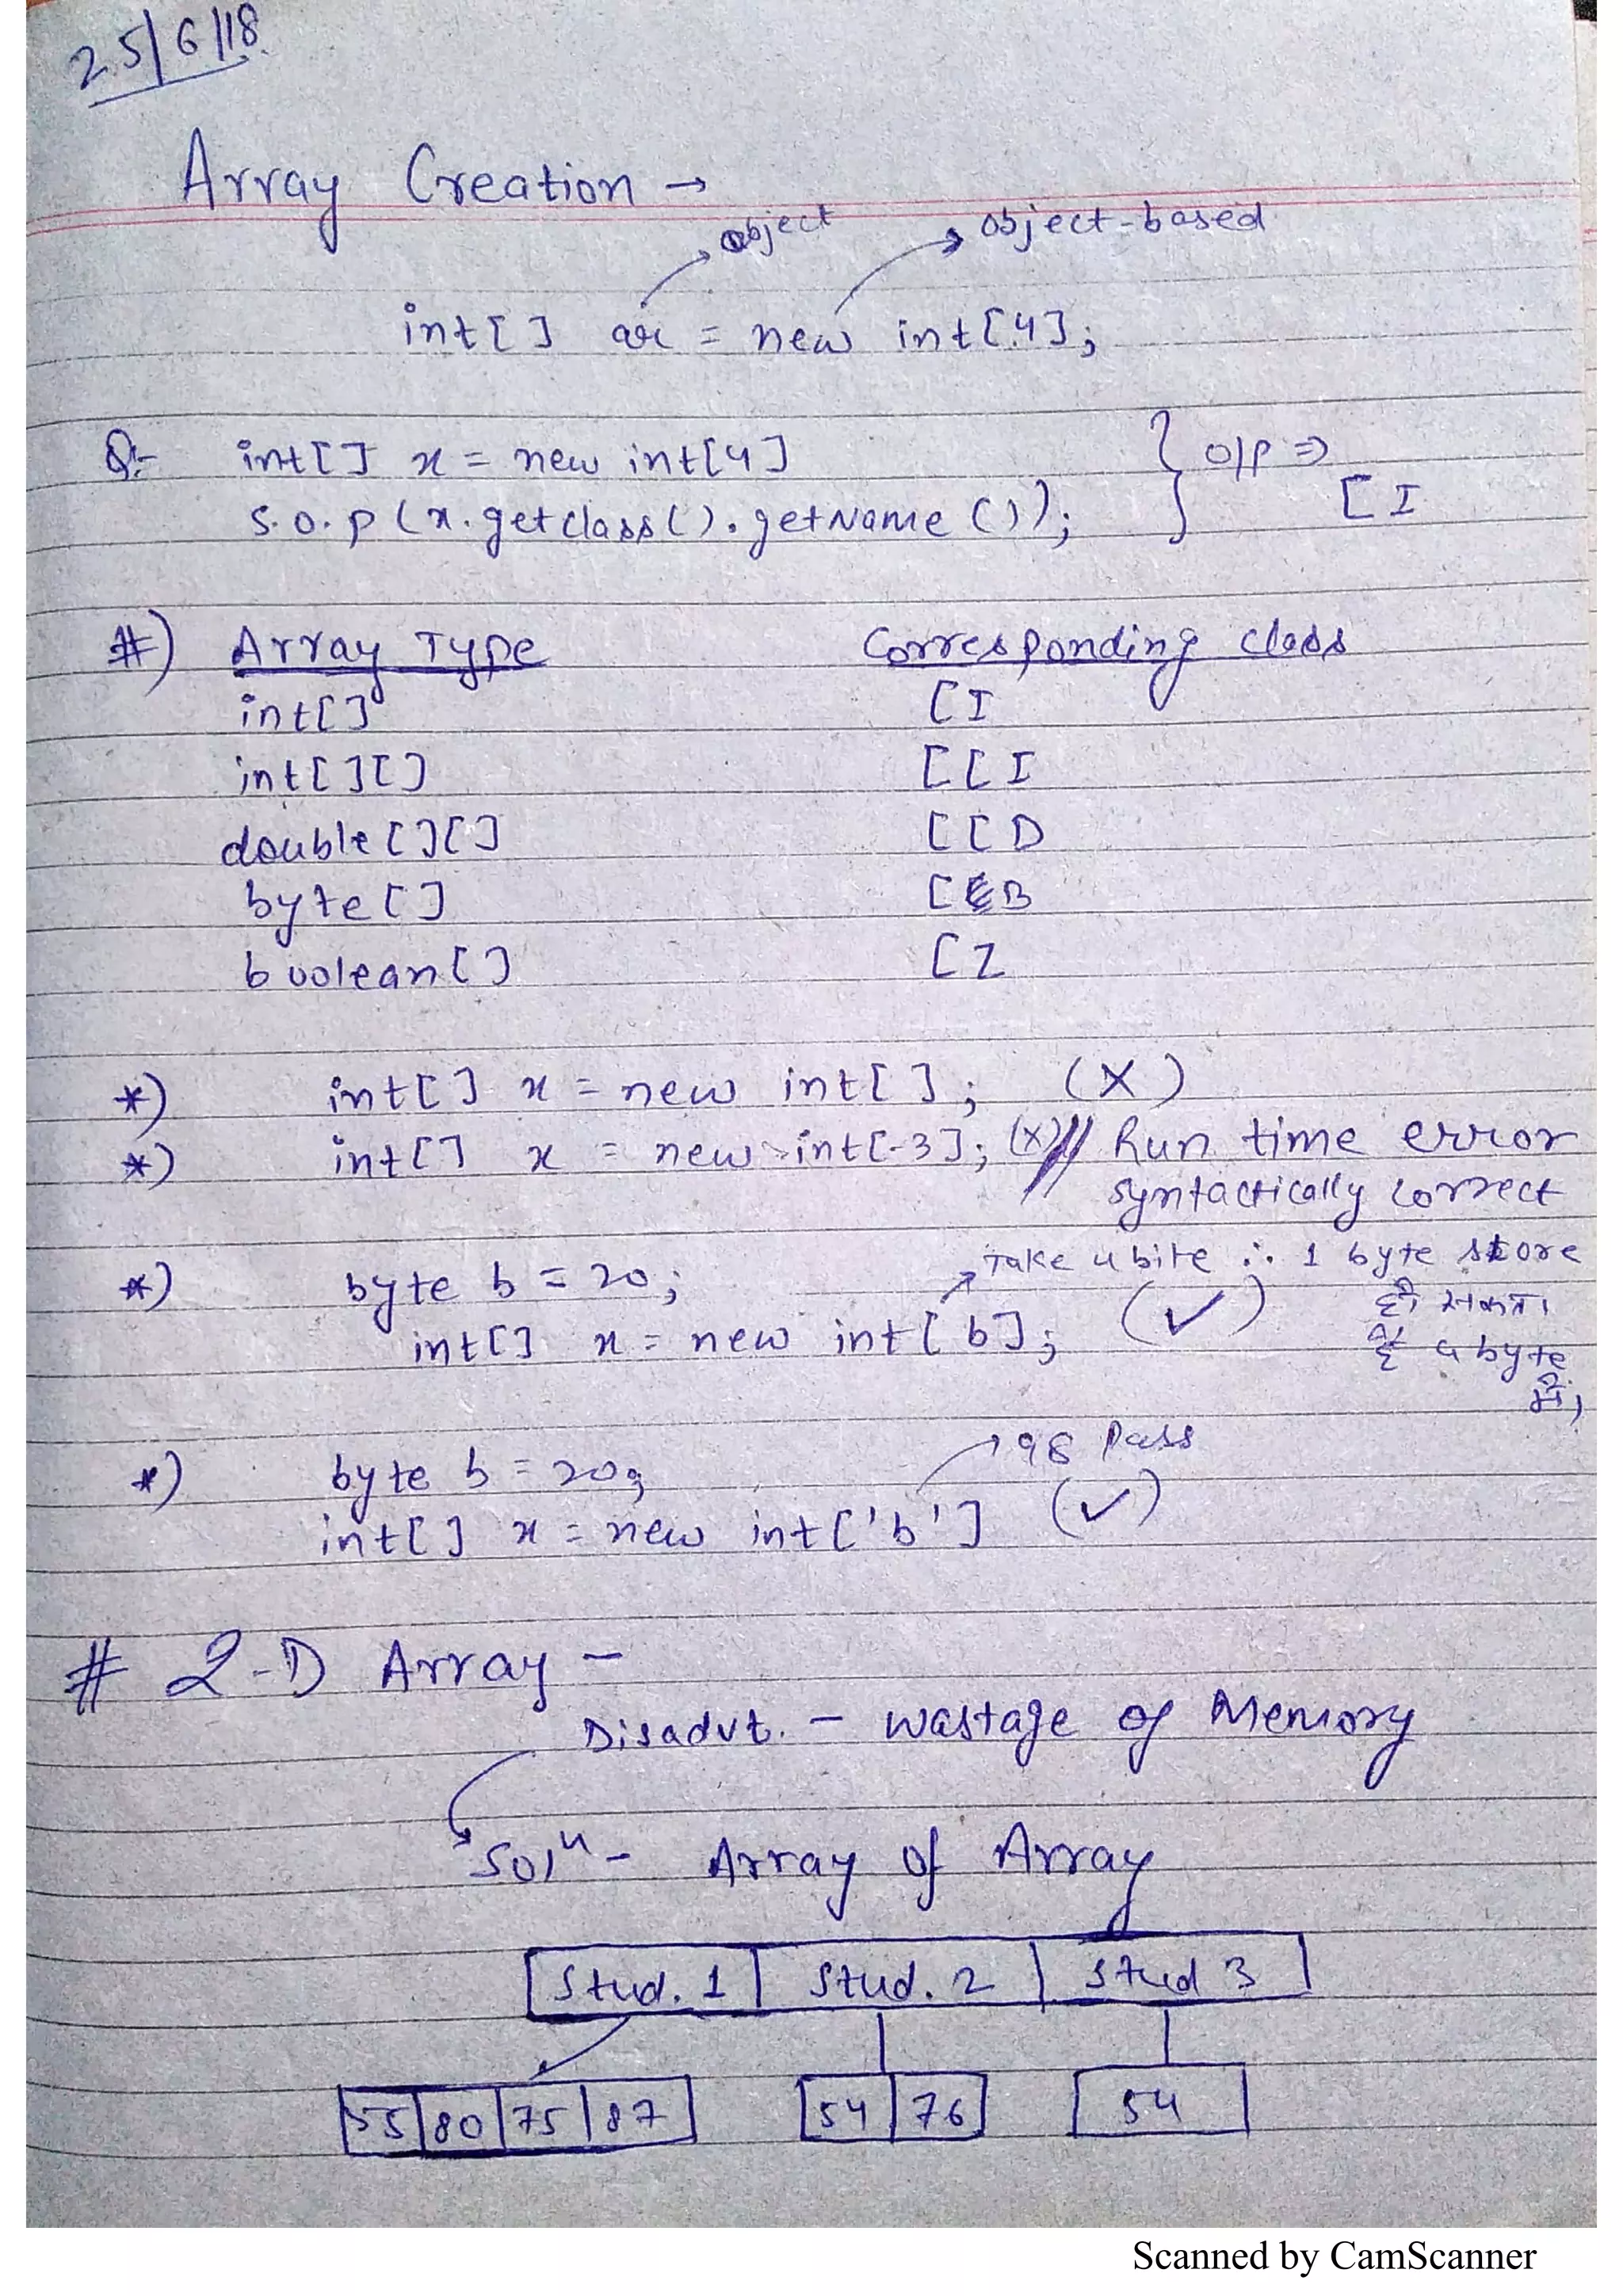 25/6/18
Array Creation →
object
object-based
int[] ar = new int[4];
Q:- int[] x = new int[4]
S.O.P(x.getclass().getName()); } O/P ⇒
[I
#) Array Type Corresponding class
int[] [I
int[][] [[I
double[][] [[D
byte[] [B
boolean[] [Z
*) int[] x = new int[]; (X)
*) int[] x = new int[-3]; (X) // Run time error
syntactically correct
Take 4 bite ∴ 1 byte store
*) byte b = 20;
हो सकता
int[] x = new int[b]; (✓)
है 4 byte
में,
98 Pass
*) byte b = 20;
int[] x = new int['b'] (✓)
# 2-D Array -
Disadvt. - Wastage of Memory
Solⁿ - Array of Array
Stud. 1 Stud. 2 Stud 3
55 80 75 87 54 76 54
Scanned by CamScanner